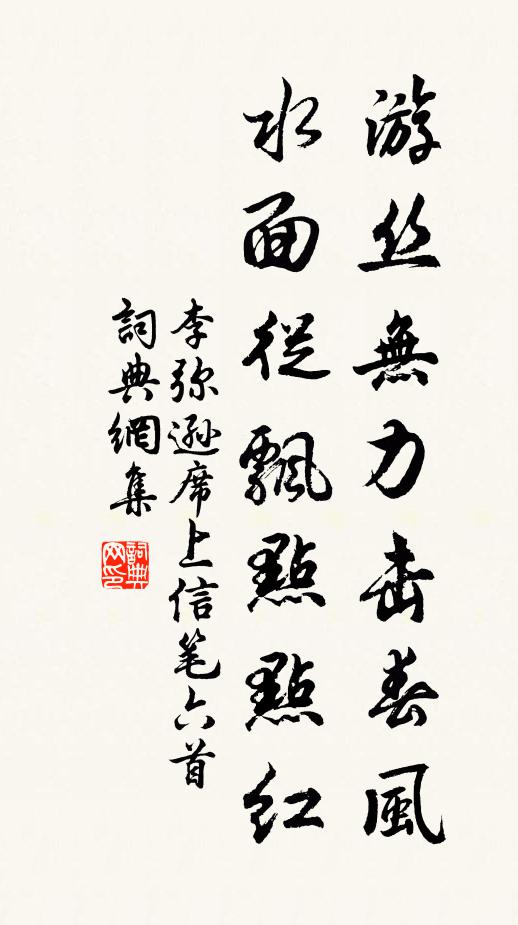 游丝無力击春風
水面從飄點點红
李弥遜席上信笔六首
詞典網集
詞典网印